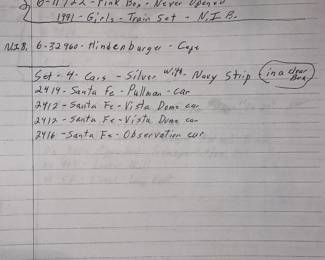 2) 6-11722 - Pink Box - Never Opened
1991 - Girls - Train Set - N.I.B.
N.I.B. 6-32960 - Hindenburger - Cafe
Set - 4 - Cars - Silver with Navy Strip (in a clear Box)
2414 - Santa Fe - Pullman - car
2412 - Santa Fe - Vista Dome car
2412 - Santa Fe - Vista Dome car
2416 - Santa Fe - Observation car